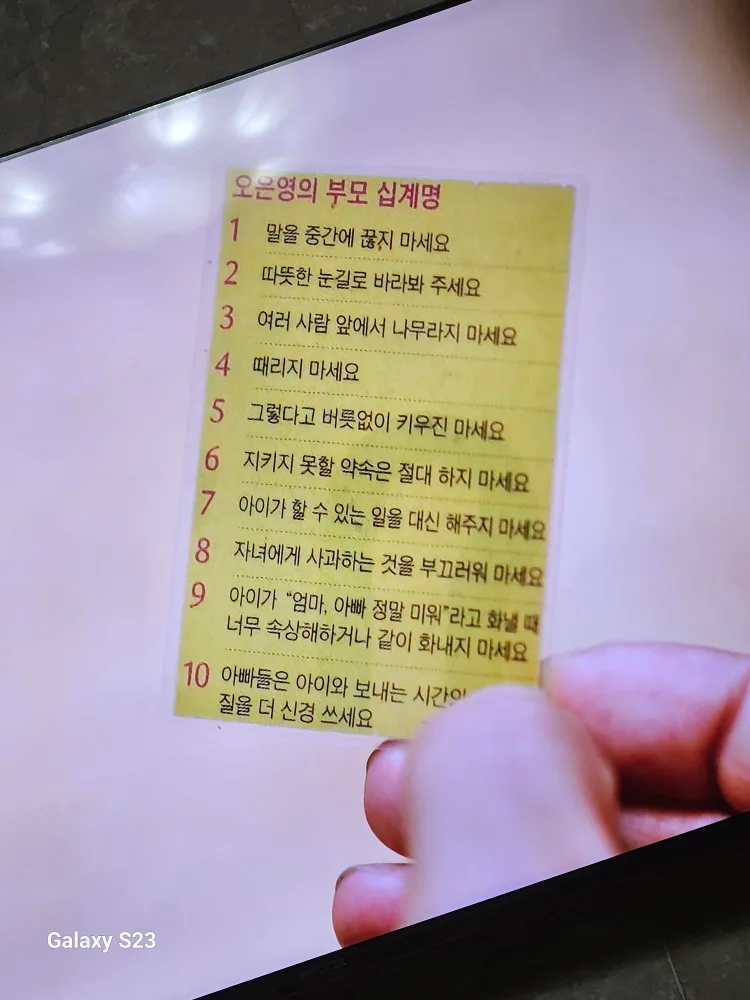 오은영의 부모 십계명
1 말을 중간에 끊지 마세요
2 따뜻한 눈길로 바라봐 주세요
3 여러 사람 앞에서 나무라지 마세요
4 때리지 마세요
5 그렇다고 버릇없이 키우진 마세요
6 지키지 못할 약속은 절대 하지 마세요
7 아이가 할 수 있는 일을 대신 해주지 마세요
8 자녀에게 사과하는 것을 부끄러워 마세요
9 아이가 “엄마, 아빠 정말 미워”라고 화낼 때
너무 속상해하거나 같이 화내지 마세요
10 아빠들은 아이와 보내는
질을 더 신경 쓰세요
Galaxy S23